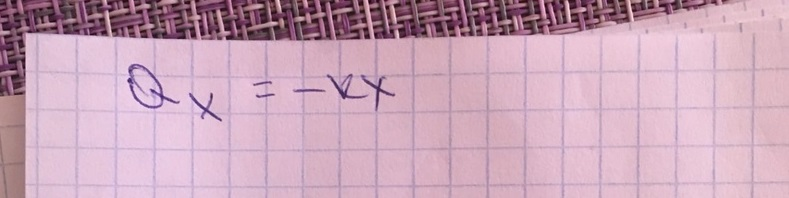 Qₓ = -kx